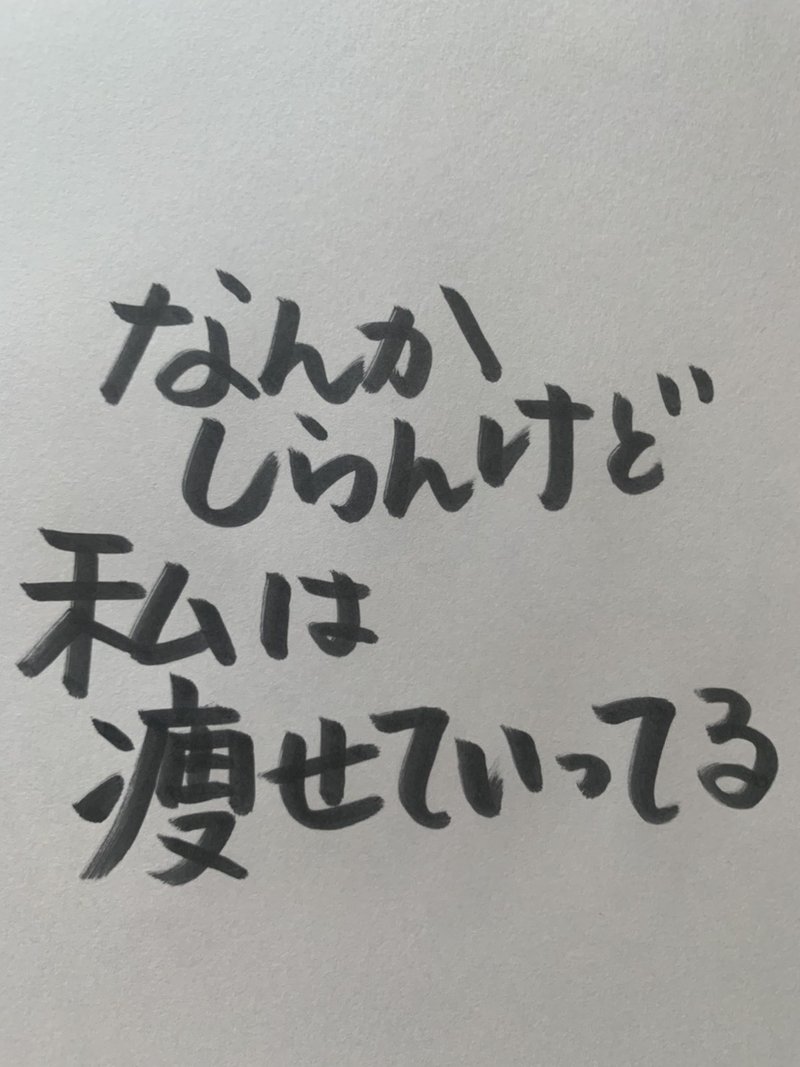 なんか
しらんけど
私は
痩せていってる